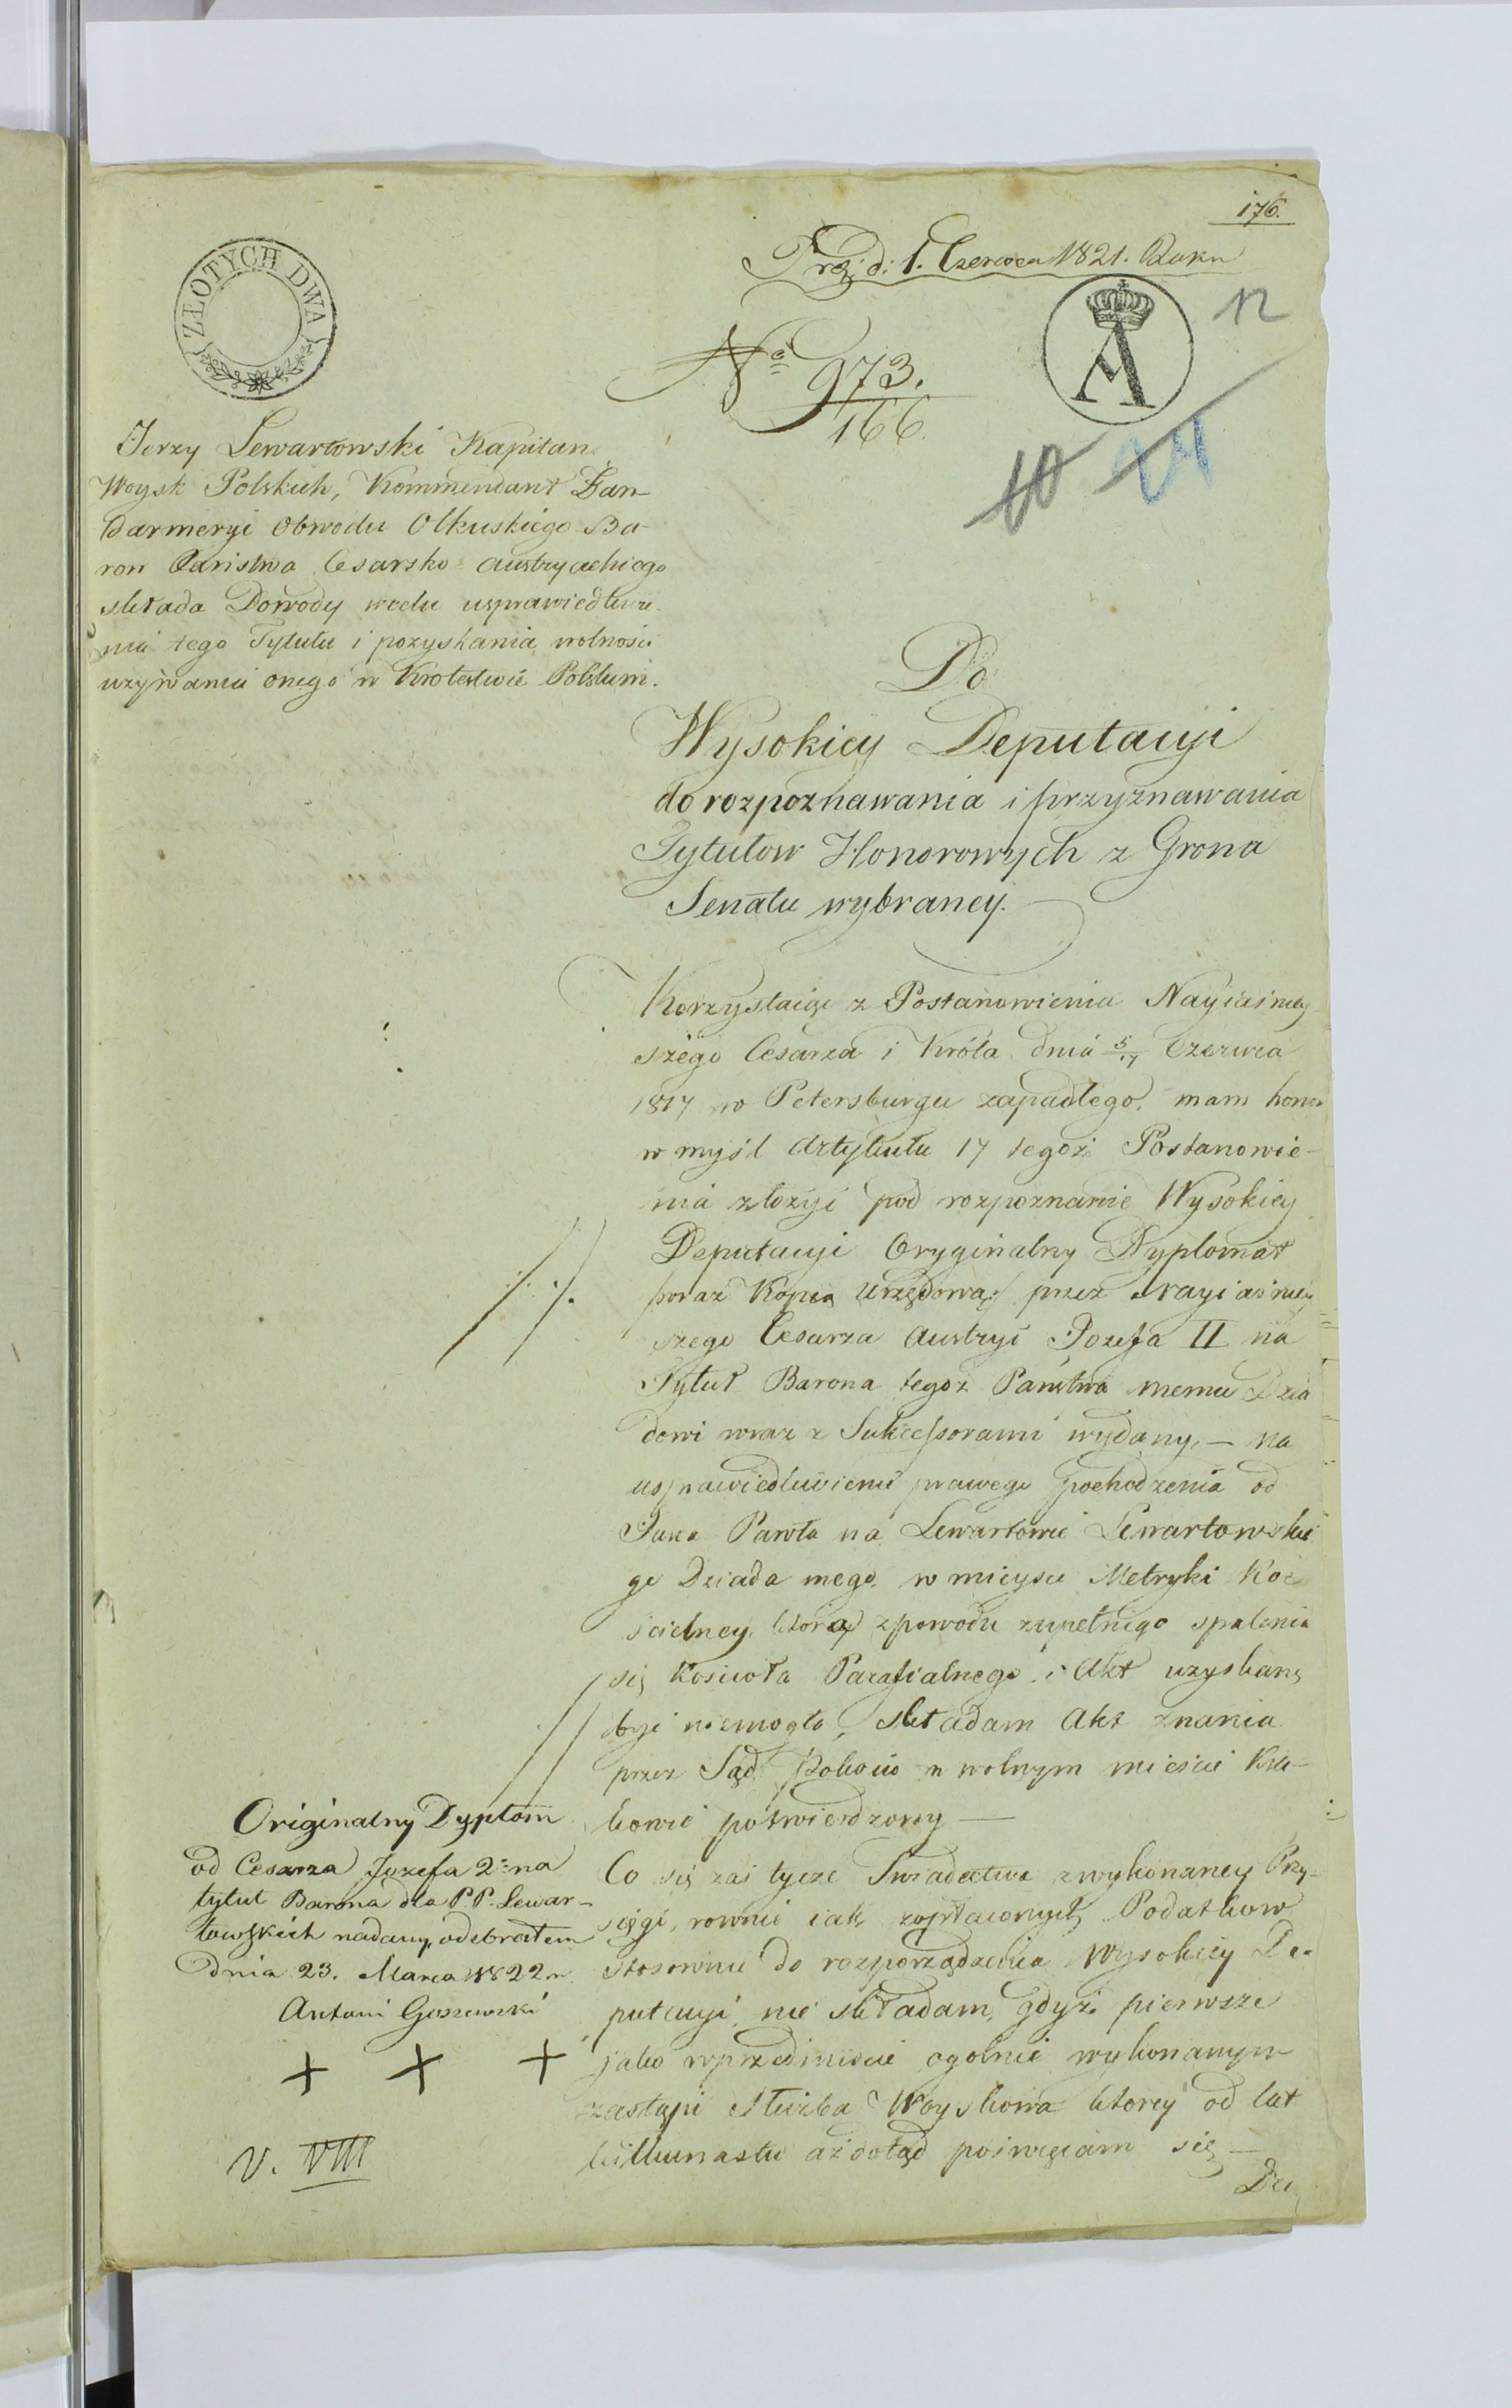 176.
Prez: d: 1. Czerwca 1821. Roku
ZŁOTYCH DWA
A
12
No 973.
166.
10 24
Jerzy Lewartowski Kapitan
Woysk Polskich, Kommendant Żan-
darmeryi Obwodu Olkuskiego Ba-
ron Państwa Cesarsko Austryackiego
składa Dowody wcelu usprawiedliwie-
nia tego Tytułu i pozyskania wolności
używania onego w Krolestwie Polskim.
Do
Wysokiey Deputacyi
do rozpoznawania i przyznawania
Tytułow Honorowych z Grona
Senatu wybraney.
Korzystaiąc z Postanowienia Nayiaśniey
szego Cesarza i Króla dnia 5/17 Czerwca
1817 w Petersburgu zapadłego, mam honor
w myśl Artykułu 17 tegoż Postanowie-
nia złożyć pod rozpoznanie Wysokiey
Deputacyi Oryginalny Dyplomat
oraz Kopią Urzędową przez Nayiaśniey
szego Cesarza Austryi Jozefa II na
Tytuł Barona tegoż Państwa memu Dzia
dowi wraz z Sukcessorami wydany, — na
usprawiedliwienie prawego pochodzenia od
Jana Pawła na Lewartowie Lewartowskie
go Dziada mego, w mieysce Metryki Koś
cielney, ktora zpowodu zupełnego spalenia
się Kościoła Parafialnego i Akt uzyskaną
być niemogła, składam Akt znania
przez Sąd Pokoiu w wolnym mieście Kra-
kowie potwierdzony —
Co się zaś tycze Swiadectwa zwykonaney Przy-
sięgi, rownie iak zapłaconych Podatkow
stosownie do rozporządzenia Wysokiey De-
putacyi, nie składam, gdyż pierwsze
jako wprzedmiocie ogolnie wykonanym
zastąpi służba Woyskowa ktorey od lat
kilkunastu aż dotąd poświęcam się —
Originalny Dyplom
od Cesarza Jozefa 2: na
tytuł Barona dla P.P. Lewar-
towskich nadany, odebrałem
dnia 23. Marca 1822 r.
Antoni Goszewski
+ + +
V. VIII